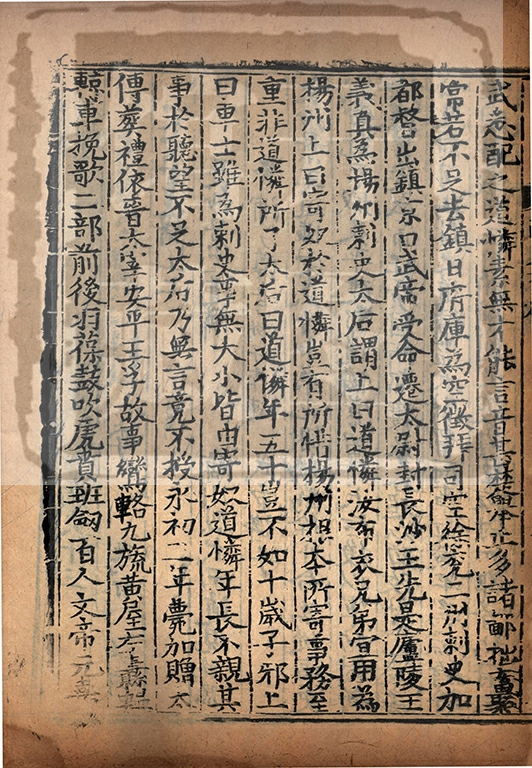 武忌配之道憐素無才能言音甚楚舉止多諸鄙拙畜聚
常若不足去鎮日府庫為空徵拜司空徐兗二州刺史加
都督出鎮京口武帝受命遷太尉封長沙王先是廬陵王
義真為揚州刺史太后謂上曰道憐汝布衣兄弟宜用為
楊州上曰寄奴於道憐豈有所惜楊州根本所寄事務至
重非道憐所了太后曰道憐年五十豈不如十歲子邪上
曰車士雖為刺史事無大小皆由寄奴道憐年長不親其
事於聽望不足太后乃無言竟不授永初二年薨加贈太
傅葬禮依晉太宰安平王孚故事鸞輅九旒黃屋左纛轀
輬車挽歌二部前後羽葆鼓吹虎賁班劒百人文帝元嘉